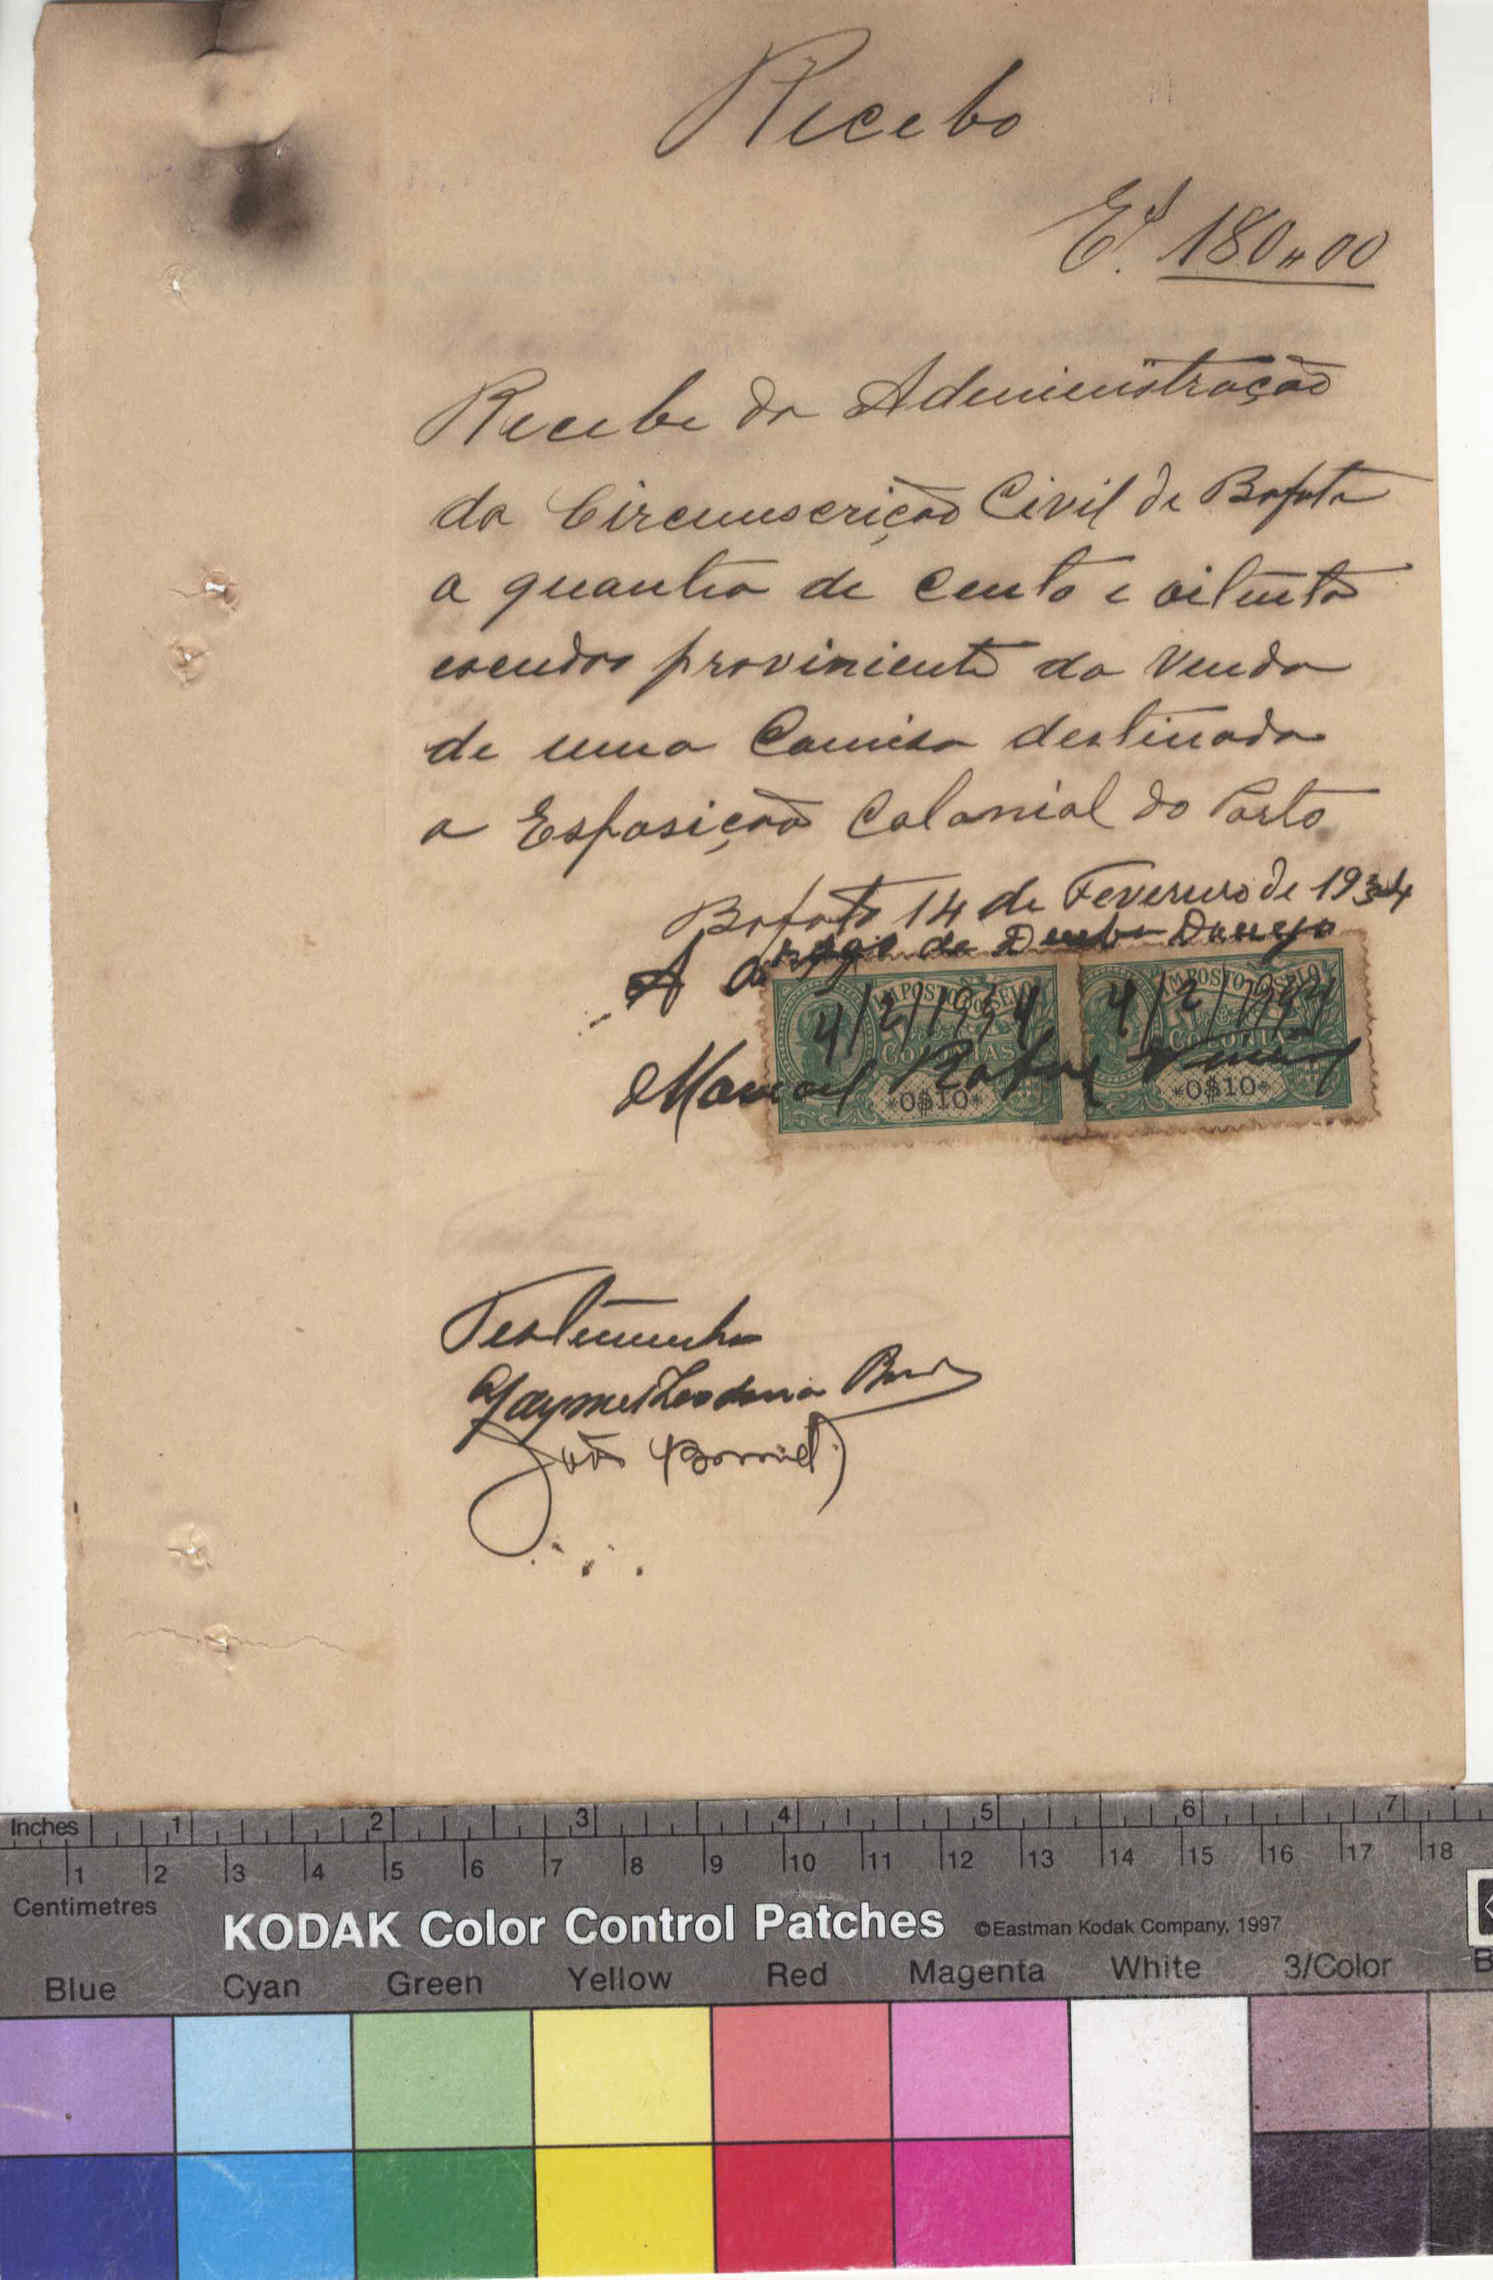 Recebo
Es. 180,,00
Recebi da Administração
da Circunscrição Civil de Bafata
a quantia de cento e oitenta
escudos proviniente da venda
de uma Camisa destinada
a Esposição Colonial do Porto
Bafata 14 de Fevereiro de 1934
A rogo de Demba
IMPOSTO DO SELO IMPOSTO DO SELO
4/2/1934 4/2/1934
COLONIAS COLONIAS
Manoel
0$10 0$10
Testemunha
Jayme
João
Inches 1 2 3 4 5 6 7
1 2 3 4 5 6 7 8 9 10 11 12 13 14 15 16 17 18
Centimetres
KODAK Color Control Patches ©Eastman Kodak Company, 1997
Blue Cyan Green Yellow Red Magenta White 3/Color B